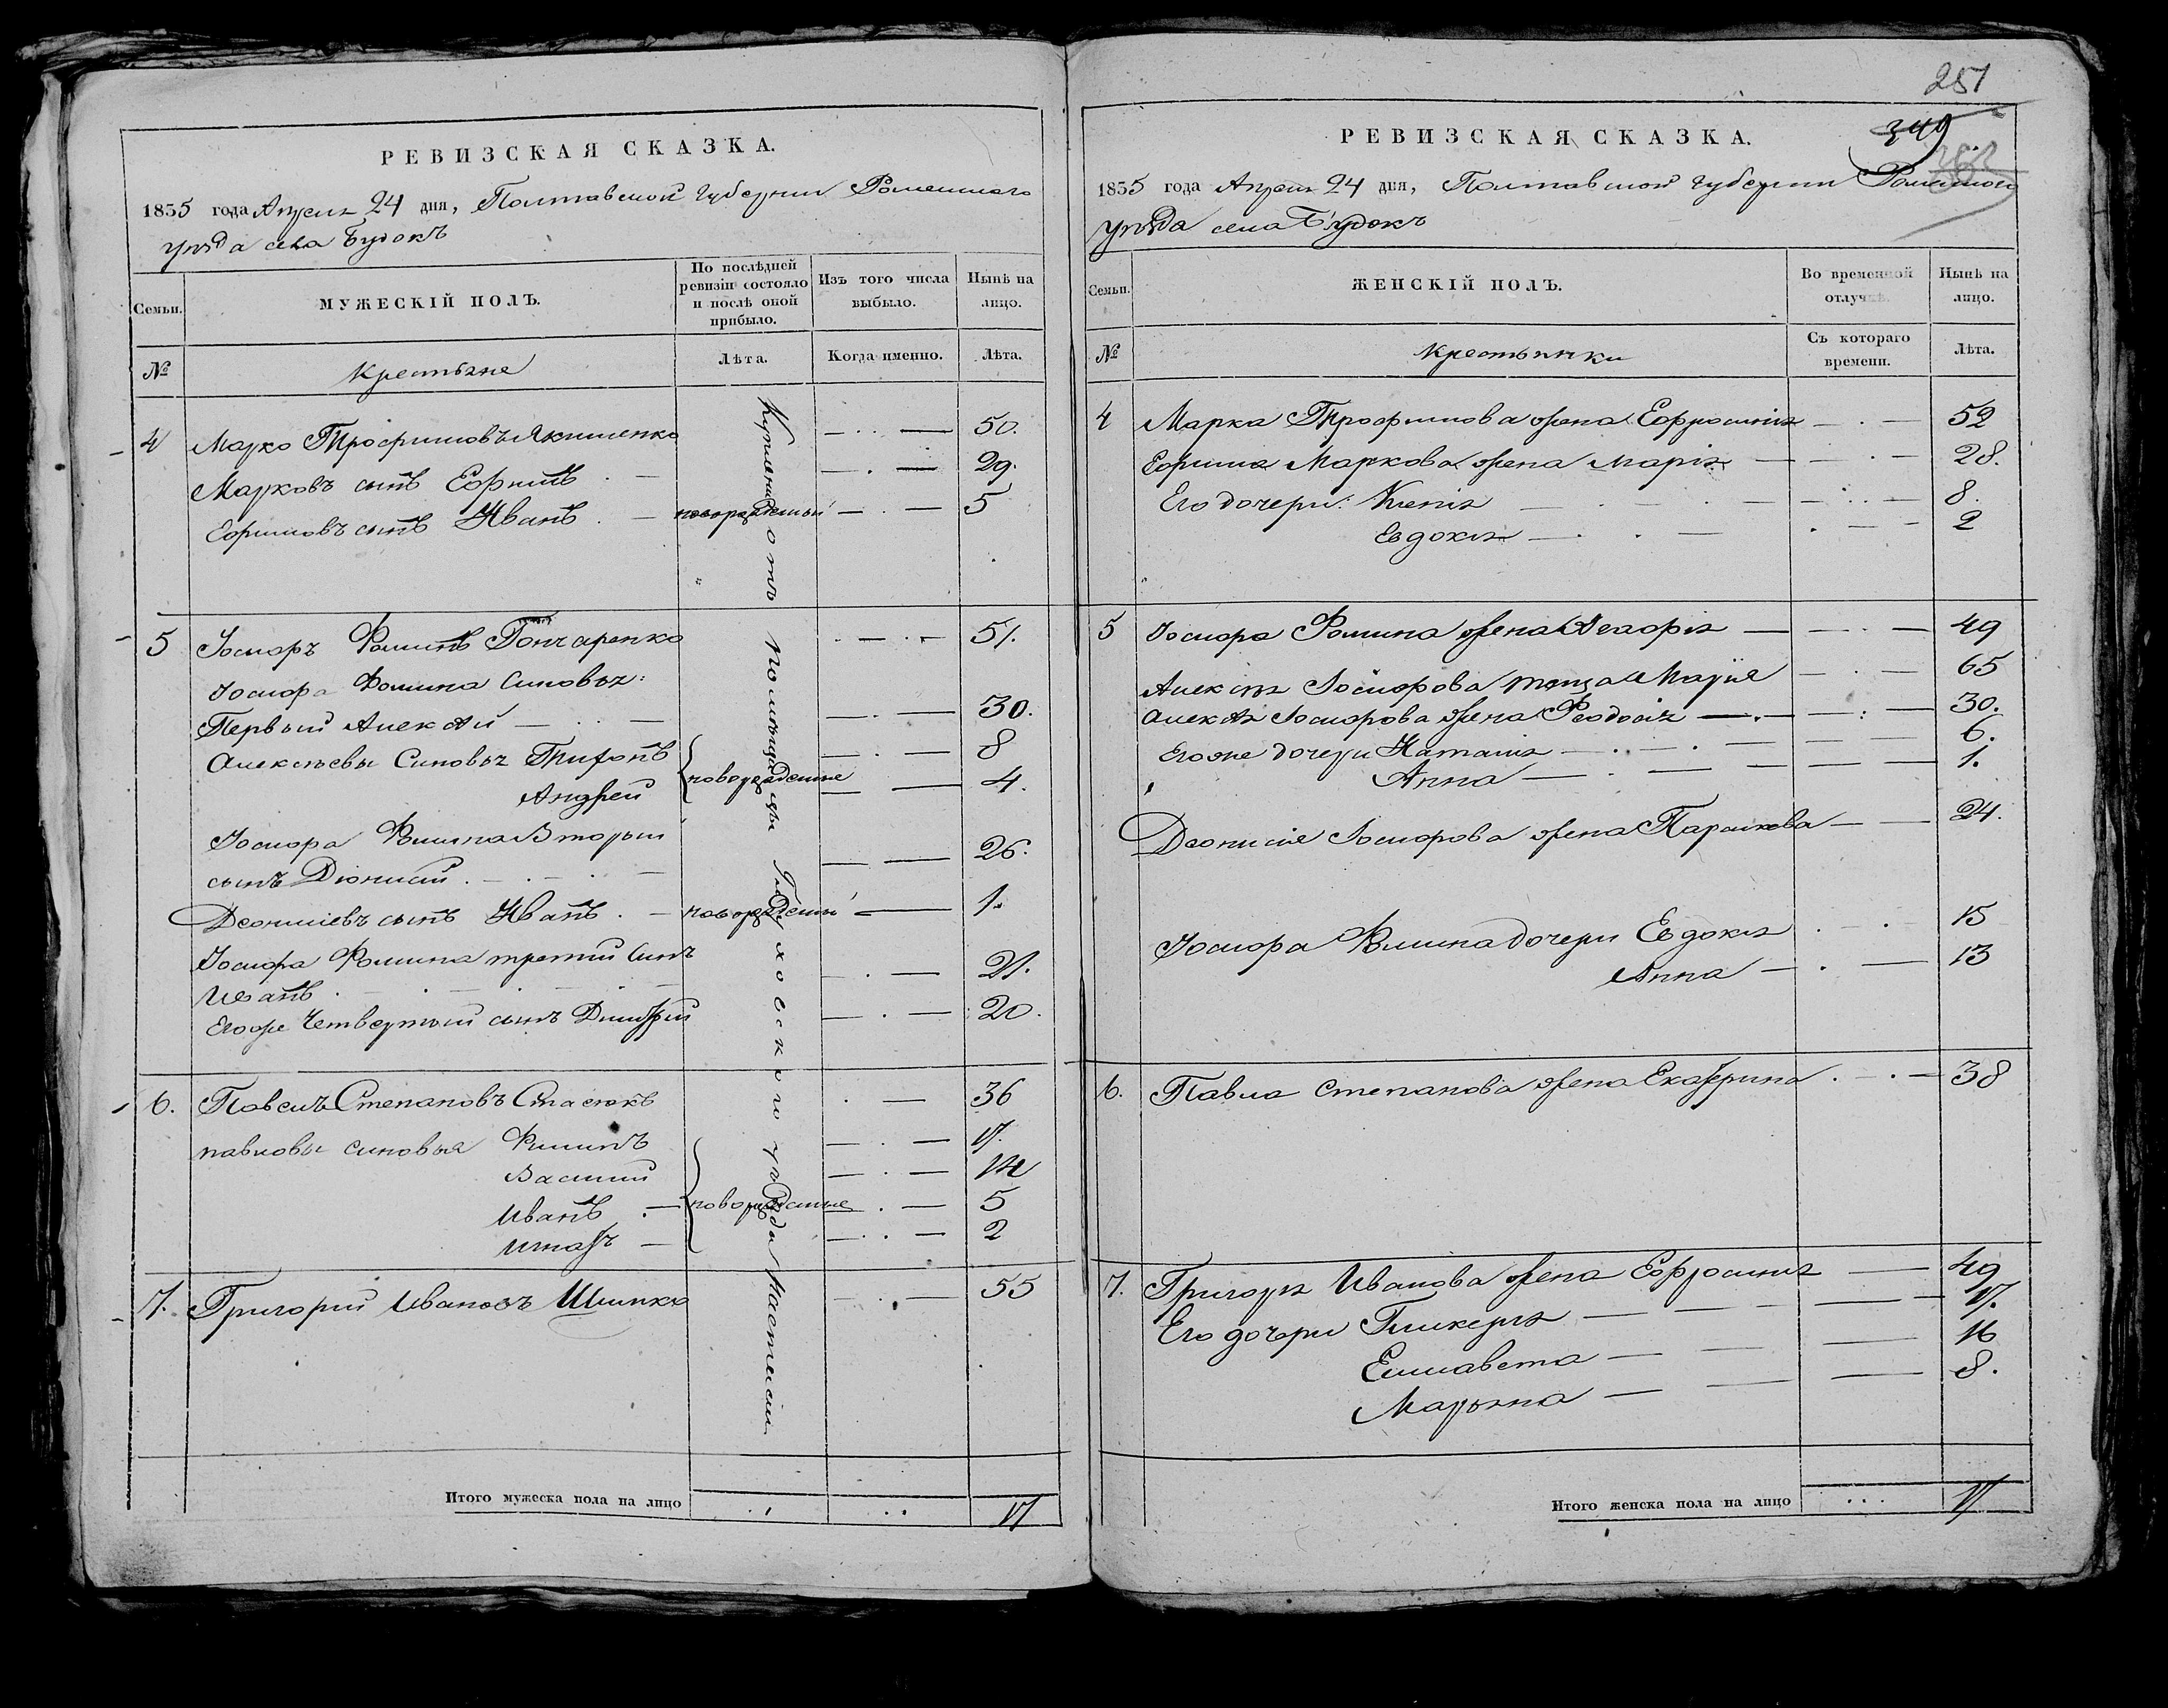 251
349
РЕВИЗСКАЯ СКАЗКА.
1835 года Апреля 24 дня, Полтавской губернии Роменского
уезда села Будокъ
Семьи.
МУЖЕСКІЙ ПОЛЪ.
По послѣдней ревизіи состояло и послѣ оной прибыло.
Изъ того числа выбыло.
Нынѣ на лицо.
№
Крестьяне
Лѣта.
Когда именно.
Лѣта.
4 Марко Трофимовъ Якименко — 50.
Марковъ сынъ Ефимъ — 29.
Ефимовъ сынъ Иванъ — новорожденый — 5
5 Іосифъ Фоминъ Гончаренко — 51.
Іосифа Фомина Синовья:
Первый Алексѣй — 30.
Алексѣевы Синовья Трифонъ — 8
Андрей новорожденые — 4.
Іосифа Фомина Вторый
сынъ Діонисій — 26.
Деонисіевъ сынъ Иванъ — новорожденый — 1.
Іосифа Фомина третий Синъ
Иванъ — 21.
Егоже Четвертый сынъ Димитрий — 20.
6. Павелъ Степановъ Стасюкъ — 36
павловы синовья Филипъ — 17.
Василий — 14
Иванъ — новорожденые — 5
Игнатъ — 2
7. Григорий Ивановъ Шинка — 55
Купленые отъ помѣщицы Глуховскаго уезда
Итого мужеска пола на лицо 17
РЕВИЗСКАЯ СКАЗКА.
1835 года Апреля 24 дня, Полтавской губернии Роменского
уезда села Будокъ
Семьи.
ЖЕНСКІЙ ПОЛЪ.
Во временной отлучкѣ.
Нынѣ на лицо.
№
Крестьянки
Съ котораго времени.
Лѣта.
4 Марка Трофимова жена Ефросинія — 52
Ефима Маркова жена Марія — 28.
Его дочери: Ксенія — 8.
Евдокія — 2
5 Іосифа Фомина жена Агафія — 49
Алексѣя Іосифова теща Марія — 65
Алексѣя Іосифова жена Феодосія — 30.
Его же дочери Наталія — 6.
Анна — 1.
Деонисія Іосифова жена Параскева — 24.
Іосифа Фомина дочери Евдокія — 15
Анна — 13
6. Павла Степанова жена Екатерина — 38
7. Григорія Иванова жена Ефросинія — 49
Его дочери Гликерія — 17.
Елисавета — 16
Марьяна — 8.
Итого женска пола на лицо 17